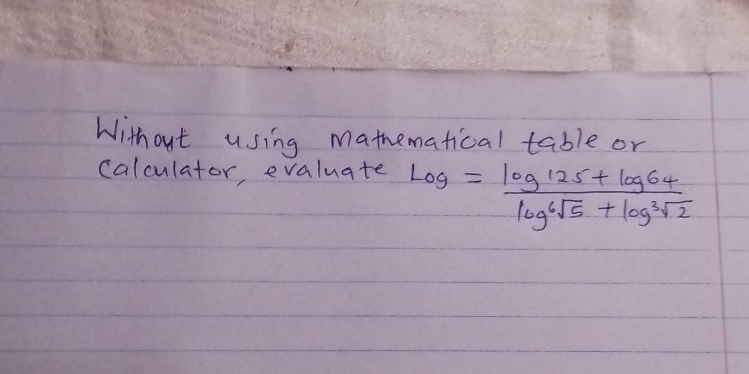 Without using Mathematical table or
Calculator, evaluate Log = log 125 + log 64
log ⁶√5 + log ³√2